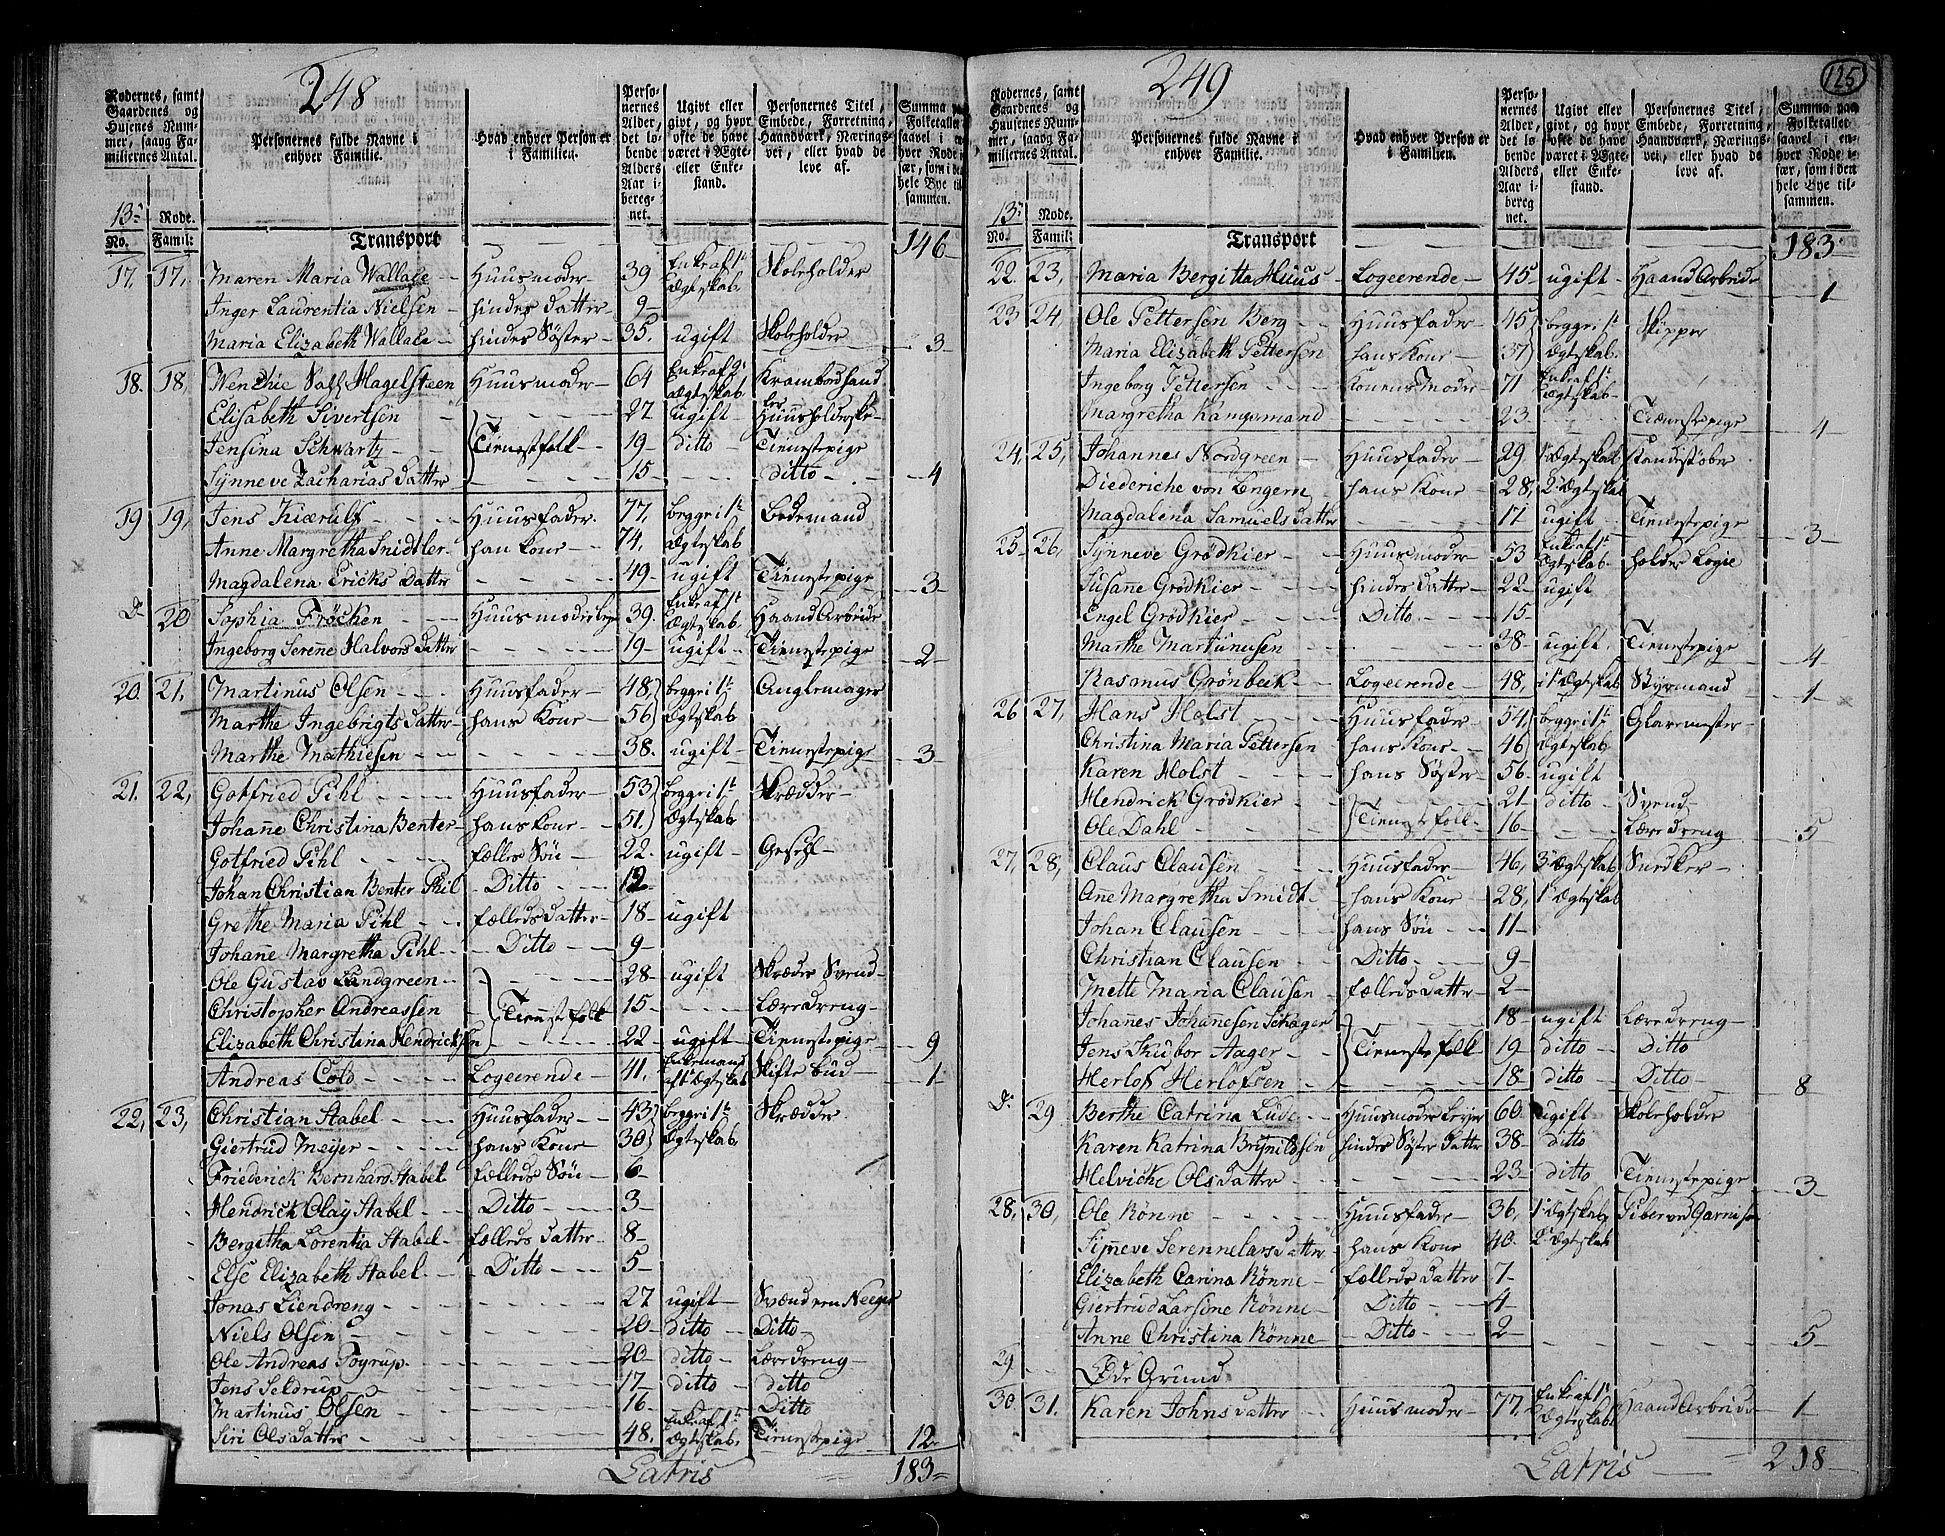 248
Rodernes, samt Gaardenes og Husenes Nummer, saavg Familiernes Antal.
Personernes fulde Navne i enhver Familie.
Hvad enhver Person er i Familien.
Personernes Alder, det løbende Alders Aar iberegnet.
Ugivt eller givt, og hvor ofte de have været i Ægte- eller Enkestand.
Personernes Titel, Embede, Forretning, Haandværk, Næringsvei, eller hvad de leve af.
13de Rode.
No. Famil:
Transport 146
17, 17, Maren Maria Wallace Huusmoder 39 Enke af 1te Ægteskab Skoleholder
Inger Laurentia Nielsen hindes datter 9
Maria Elizabeth Wallace hindes Søster 35. ugift Skoleholder 3
18. 18, Wenchie Sal. Hagelsteen Huusmoder 64 Enke af 2 Ægteskab Krambodhandler
Elisabeth Sivertsen 27 ugift Huusholderske
Jensina Schwartz Tienestfolk 19 ditto Tienestepige
Synneve Zacharias datter 15 ditto 4
19 19, Jens Kierulf Huusfader. 77, begge i 1te Bedemand
Anne Margretha Snidtler han kone 74, Ægteskab
Magdalena Ericks datter 49 ugift Tienestepige 3
do 20 Sophia Frøchen Huusmoder 39. Enke af 1te Ægteskab. Haand Arbeide
Ingeborg Serene Halvors datter 19 ugift Tienestepige 2
20. 21, Martinus Olsen Huusfader 48, begge i 1te Anglemager
Marthe Ingebrigts datter hans Kone 56 Ægteskab
Marthe Mathiesen 38. ugift Tienestepige 3
21. 22, Gotfried Pihl Huusfader 53 begge i 1te Skrædder
Johanne Christina Benter hans kone 51. Ægteskab
Gotfried Pihl fælleds Søn 22. ugift Gesel
Johan Christian Benter Phil Ditto 12
Grethe Maria Pihl fælleds datter 18 ugift
Johane Margretha Pihl Ditto 9
Ole Gustav Landgreen 28 ugift Skræder Svend
Christopher Andreassen Tienestefolk 15 Læredreng
Elizabeth Christina Hendricksen 22 ugift Tienestepige 9
Andreas Cold Logeerende 41. Enkemand af 1te Ægteskab Skifte bud 1
22, 23, Christian Stabel Huusfader 43 begge i 1te Skrædder.
Giertrud Meijer hans Kone 30 Ægteskab
Friederick Bernhard Stabel fælleds Søn 6
Hendrick Olay Stabel Ditto 3
Bergitha Lorentia Stabel fælleds datter 8
Else Elizabeth Stabel Ditto 5
Jonas Liendreng 27 ugift
Niels Olsen 20 ditto Ditto
Ole Andreas Toyrup 20 ditto Læredreng
Jens Seldrup 17 ditto ditto
Martinus Olsen 16 Ditto
Siri Olsdatter 48. Enke af 1te Ægteskab. Tienestepige 12
Latris 183
249
125
Rodernes, samt Gaardenes og Huusenes Nummer, saavg Familiernes Antal.
Personernes fulde Navne i enhver Familie.
Hvad enhver Person er i Familien.
Personernes Alder, det løbende Alders Aar iberegnet.
Ugivt eller givt, og hvor ofte de have været i Ægte- eller Enkestand.
Personernes Titel, Embede, Forretning, Haandværk, Næringsvei, eller hvad de leve af.
Summa paa Folketallet saavel i enhver Rode især, som i den hele Bye tilsammen.
13de Rode.
No. Famil:
Transport 183
22. 23, Maria Bergitta Huus Logeerende 45 ugift Haand Arbeide 1
23 24 Ole Pettersen Berg Huusfader 45 begge i 1te Skipper
Maria Elizabeth Pettersen hans Kone 37 Ægteskab.
Ingeborg Pettersen Konens Moder 71 Enke af 1te Ægteskab
Margretha Kampsmand 23 Tienestepige 4
24, 25, Johannes Nordgreen Huusfader 29 1te Ægteskab Kandestøber
Diederiche von Lengern hans Kone 28, 2. Ægteskab
Magdalena Samuels datter 17 ugift Tienestepige 3
25 26, Synneve Grødkier Huusmoder 53 Enke af 1te Ægteskab holder Logie
Susane Grødkier hindes datter 22 ugift
Engil Grødkier Ditto 15
Marthe Martinusen 38 ugift. Tienestepige 4
Rasmus Grønbeck Logeerende 48, i 1te Ægteskab Styrmand 1
26 27, Hans Holst Huusfader 54, begge i 1te Glarmester
Christina Maria Pettersen hans Kone 46 Ægteskab
Karen Holst hans Søster 56 ugift
Hendrick Grødkier 21 ditto Svend
Ole Dahl Tienestefolk 16 Læredreng 5
27, 28, Claus Clausen Huusfader 46, 3 Ægteskab Snedker
Ane Margretha Smidt hans Kone 28, 1te Ægteskab
Johan Clausen hans Søn 11
Christian Clausen Ditto 9
Mette Maria Clausen fælleds datter 2
Johannes Johannesen Schager 18 ugift Læredreng
Jens Skubor Aager Tienestefolk 19 ditto Ditto
Herlof Herlofsen 18 ditto Ditto 8
do 29 Berthe Catrina Lude Huusmoder Leyer 60 ugift Skoleholder
Karen Katrina Brynildsen hindes Søster datter 38 ditto
Helviche Olsdatter 23 ditto Tienestepige 3
28, 30, Ole Rønne Huusfader 36, 1te Ægteskab Piber ved Garnison
Simneve Serenne Larsdatter hans Kone 40. 2 Ægteskab
Elizabeth Carina Rønne fælleds datter 7
Giertrud Larsine Rønne Ditto 4
Anne Christina Rønne Ditto 2 5
29 Øde Grund
30. 31. Karen Johnsdatter Huusmoder 77. Enke af 1te Ægteskab Haand Arbeide 1
Latris 218